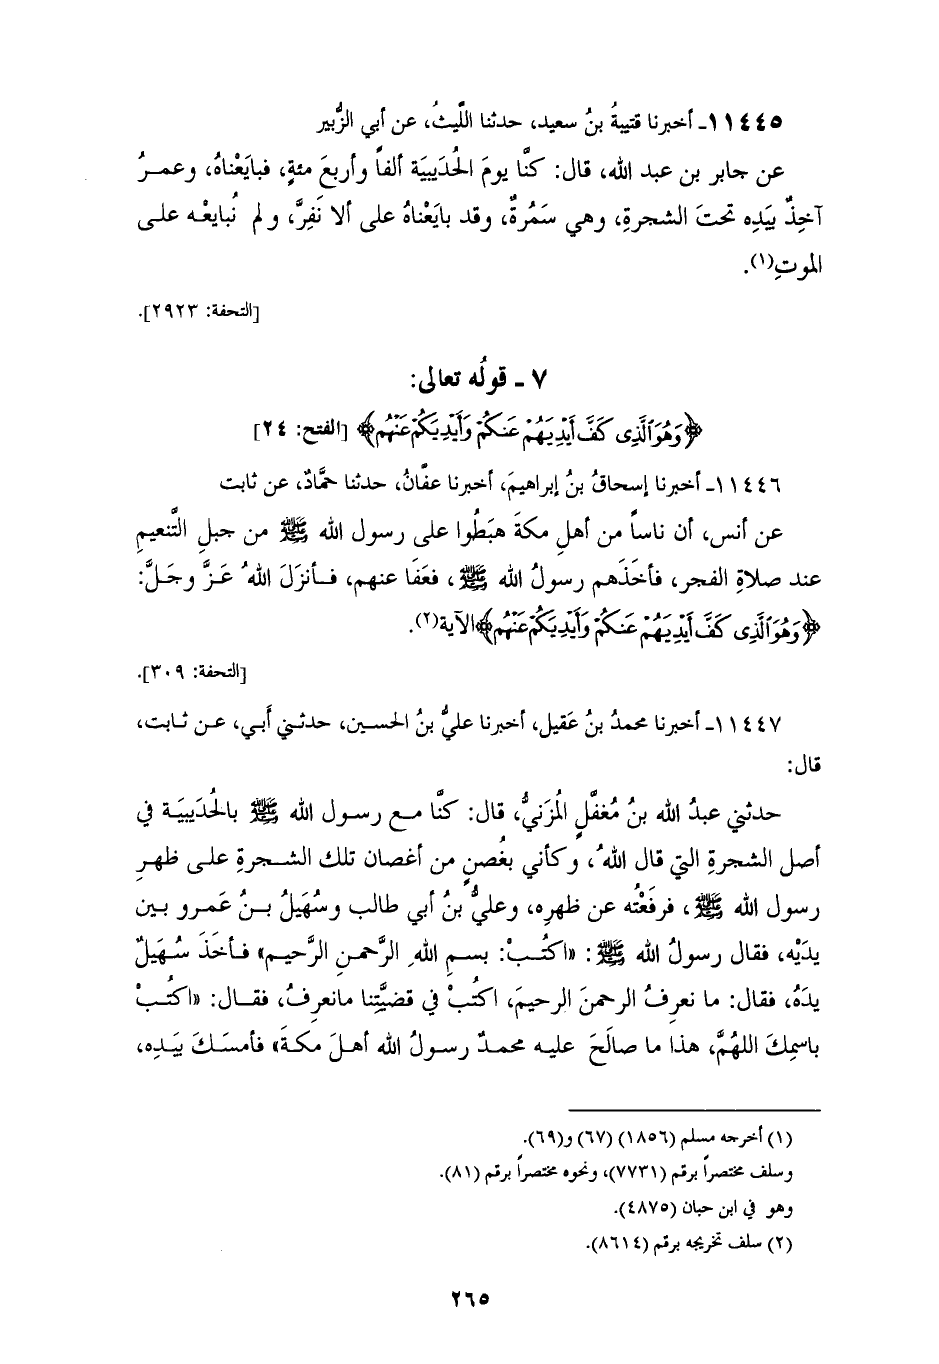 ١١٤٤٥ـ أخبرنا قتيبةُ بنُ سعيد، حدثنا اللَّيثُ، عن أبي الزُّبير
عن جابر بن عبد الله، قال: كنَّا يومَ الحُدَيبيَة ألفاً وأربعَ مئةٍ، فبايَعْناهُ، وعمـرُ
آخِذٌ بيَدِه تحتَ الشجرةِ، وهي سَمُرةٌ، وقد بايَعْناهُ على ألا نَفِرَّ، ولم نُبايعْـه علـى
الموتِ(١).
[التحفة: ٢٩٢٣].
٧ ـ قولُه تعالى:
﴿وَهُوَ ٱلَّذِى كَفَّ أَيْدِيَهُمْ عَنكُمْ وَأَيْدِيَكُمْ عَنْهُم﴾ [الفتح: ٢٤]
١١٤٤٦ـ أخبرنا إسحاقُ بنُ إبراهيمَ، أخبرنا عفَّانُ، حدثنا حمَّادٌ، عن ثابت
عن أنس، أن ناساً من أهلِ مكةَ هبَطُوا على رسول الله ﷺ من جبلِ التَّنعيمِ
عند صلاةِ الفجر، فأخَذَهم رسولُ الله ﷺ، فعَفَا عنهم، فـأنزَلَ اللهُ عَـزَّ وجَـلَّ:
﴿وَهُوَ ٱلَّذِى كَفَّ أَيْدِيَهُمْ عَنكُمْ وَأَيْدِيَكُمْ عَنْهُم﴾الآية(٢).
[التحفة: ٣٠٩].
١١٤٤٧ـ أخبرنا محمدُ بنُ عَقيل، أخبرنا عليُّ بنُ الحسـين، حدثـني أَبـي، عـن ثـابت،
قال:
حدثني عبدُ الله بنُ مُغفَّلٍ المُزَنيُّ، قال: كنَّا مـع رسـول الله ﷺ بالحُدَيبيَـة في
أصل الشجرةِ التي قال اللهُ، وكأني بغُصنٍ من أغصان تلك الشـجرةِ علـى ظهـرِ
رسول الله ﷺ، فرفَعْتُه عن ظهرِه، وعليُّ بنُ أبي طالب وسُهَيلُ بـنُ عَمـرو بـين
يدَيْه، فقال رسولُ الله ﷺ: «اكتُـبْ: بسـمِ اللهِ الرَّحمـنِ الرَّحيـم» فـأخَذَ سُـهَيلٌ
يدَهُ، فقال: ما نعرِفُ الرحمنَ الرحيمَ، اكتُبْ في قضيَّتِنا مانعرِفُ، فقـال: «اكتُـبْ
باسمِكَ اللهُمَّ، هذا ما صالَحَ عليـه محمـدٌ رسـولُ الله أهـلَ مكـةَ» فأمسَـكَ بيَـدِه،
(١) أخرجه مسلم (١٨٥٦) (٦٧) و(٦٩).
وسلف مختصراً برقم (٧٧٣١)، ونحوه مختصراً برقم (٨١).
وهو في ابن حبان (٤٨٧٥).
(٢) سلف تخريجه برقم (٨٦١٤).
٢٦٥